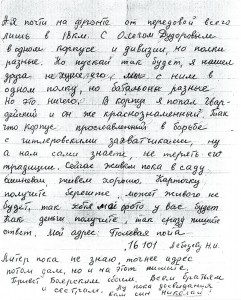 Ая почти на фронте от передовой всего
лишь в 18км. С Олегом Федоровым
в одном корпусе и дивизии, но полки
разные. Но пускай так будет, я нашел
друга не хуже его, мы с ним в
одном полку, но батальоны разные
Но это ничего. В корпус я попал Гвар-
дейский и он же краснознаменный. Так
что корпус прославленный в борьбе
с гитлеровскими захватчиками, ну
а нам сами знаете, не терять его
традиции. Сейчас живем пока в саду
вишневом живем хорошо. Карточку
получите берегите, может живого не
будет, так хотя мое фото у вас будет
Как деньги получите, так сразу пишите
ответ. Мой адрес: Полевая почта
16101 Лебедев, Н.И.
Литер пока не знаю, точнее адрес
потом дам, но и на этот пишите.
Привет всем братьям
и сестрам. Ну пока досвидания
ваш сын Николай